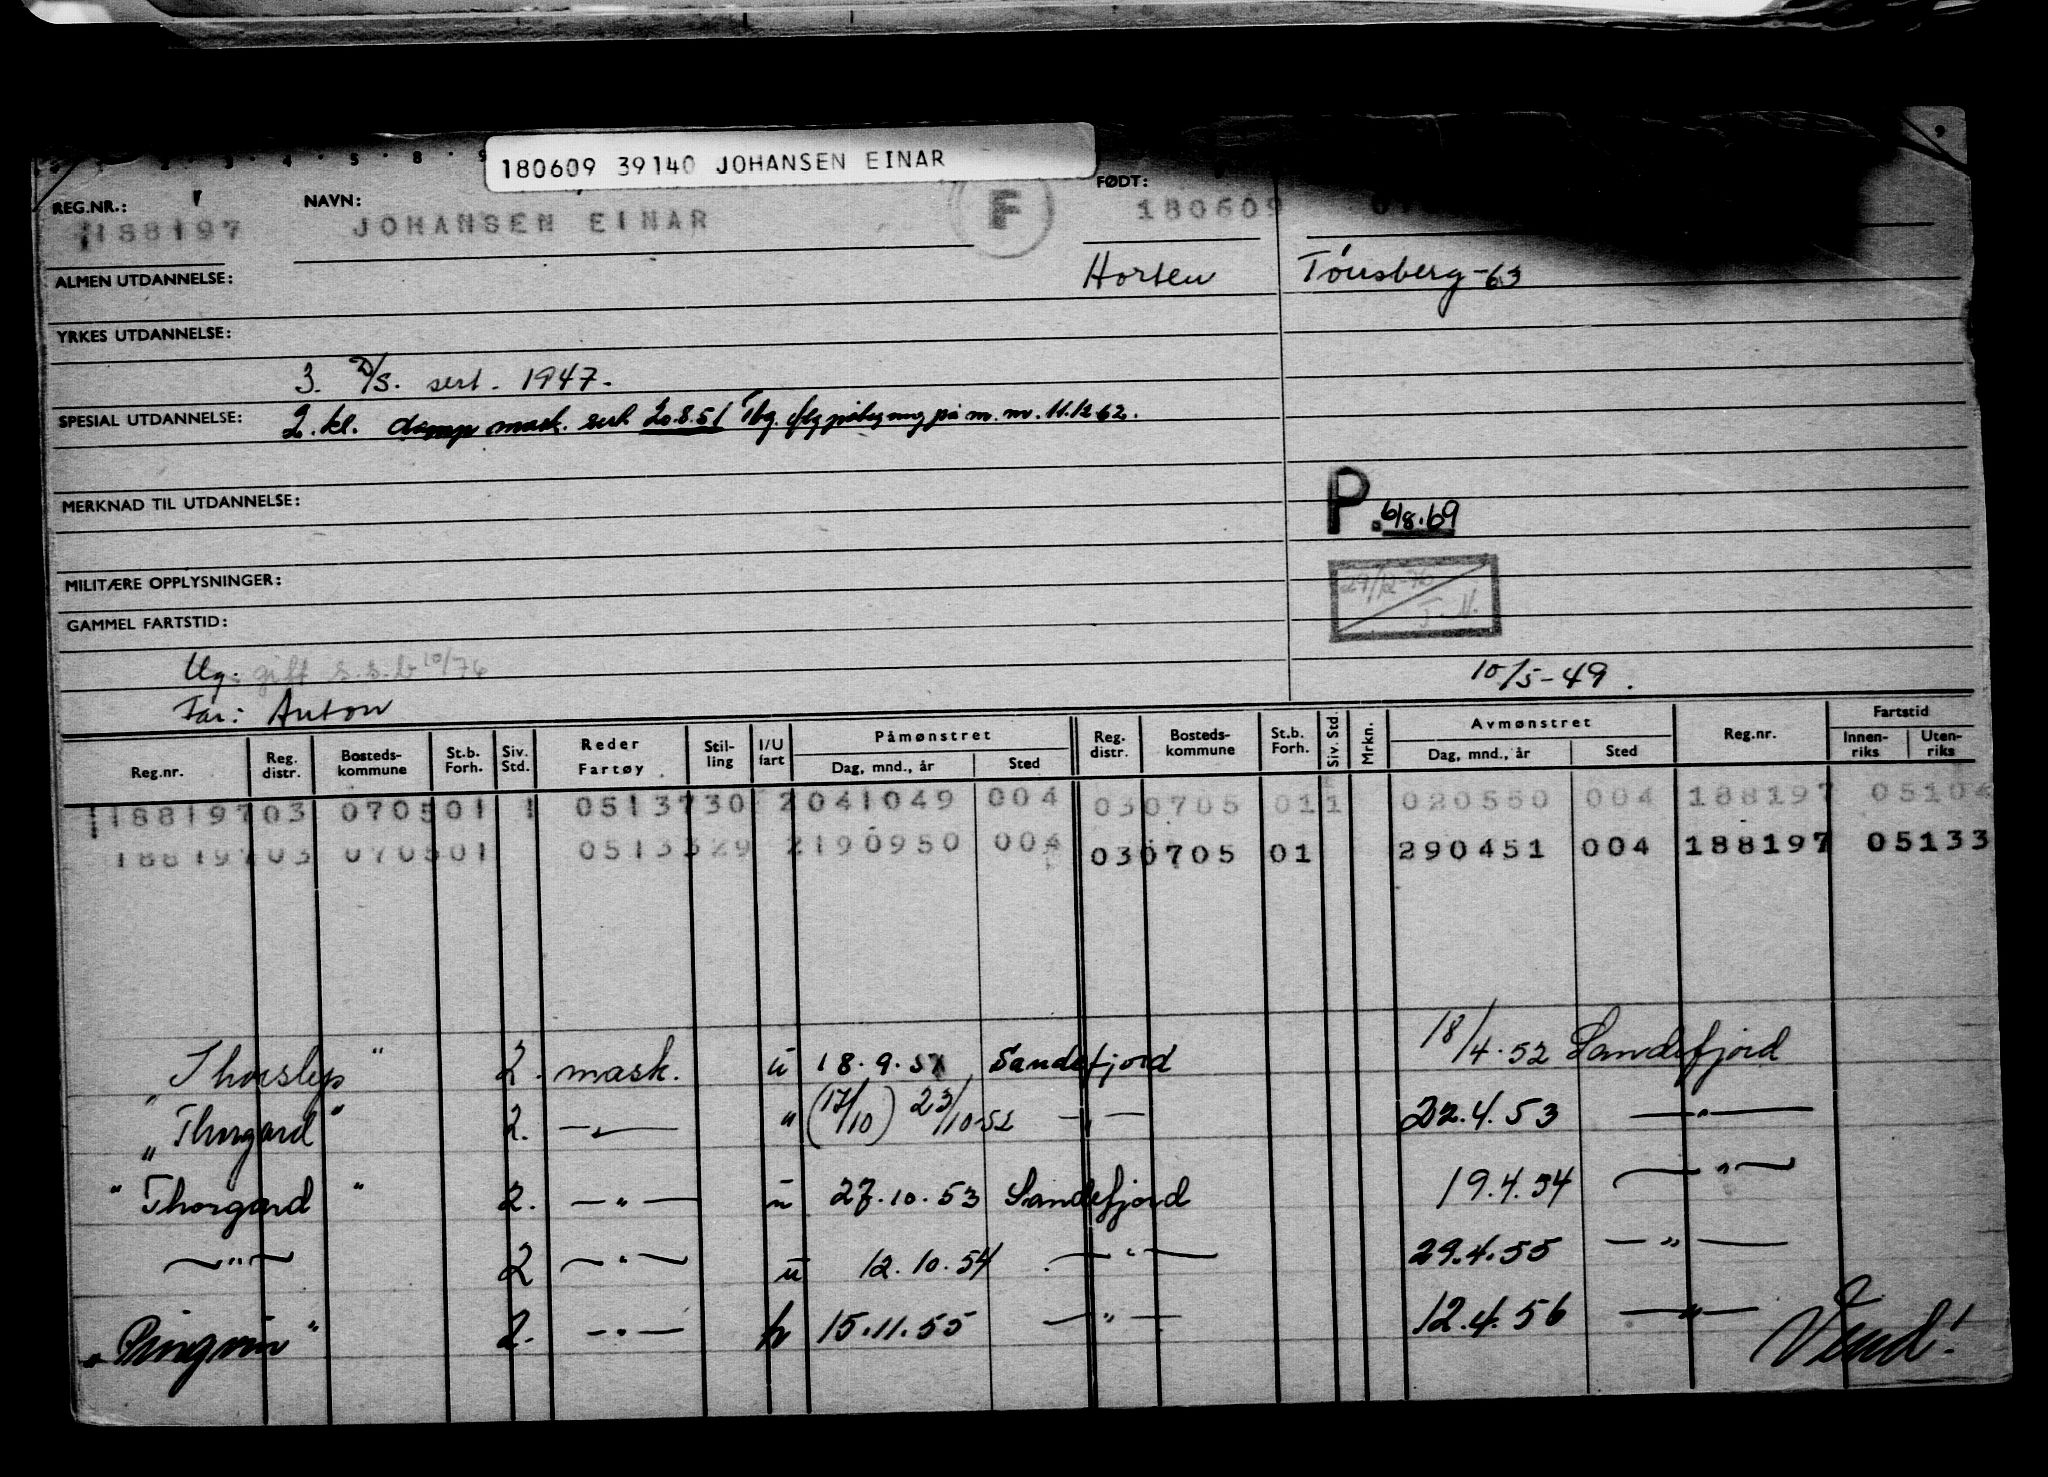 180609 39140 JOHANSEN EINAR
REG.NR.: NAVN: FØDT:
188197 JOHANSEN EINAR F 180609
ALMEN UTDANNELSE: Horten Tönsberg-63
YRKES UTDANNELSE:
3. D/S. sert. 1947.
SPESIAL UTDANNELSE: 2. kl. damp mask. sert 20.8.51 Tbg. påtegning på m. m. 11.12.62.
MERKNAD TIL UTDANNELSE:
P. 6/8.69
MILITÆRE OPPLYSNINGER:
GAMMEL FARTSTID:
Ug: gift s.s.b 10/76
10/5-49.
Far: Anton
Reg.nr. Reg. distr. Bosteds-kommune St.b. Forh. Siv. Std. Reder Fartøy Stil-ling I/U fart Påmønstret Dag, mnd., år Sted Reg. distr. Bosteds-kommune St.b. Forh. Siv. Std. Mrkn. Avmønstret Dag, mnd., år Sted Reg.nr. Fartstid Innen-riks Uten-riks
188197 03 0705 01 1 0513730 2 041049 004 03 0705 01 1 020550 004 188197 05104
188197 03 0705 01 0513329 2 190950 004 03 0705 01 290451 004 188197 05133
"Thorslep" 2. mask. u 18.9.51 Sandefjord 18/4.52 Sandefjord
"Thorgard" 2. —"— " (17/10) 23/10-52 —"— 22.4.53 —"—
"Thorgard" 2. —"— u 27.10.53 Sandefjord 19.4.54 —"—
—"— 2 —"— u 12.10.54 —"— 29.4.55 —"—
"Pingvin" 2. —"— h 15.11.55 —"— 12.4.56 —"—
Vend!